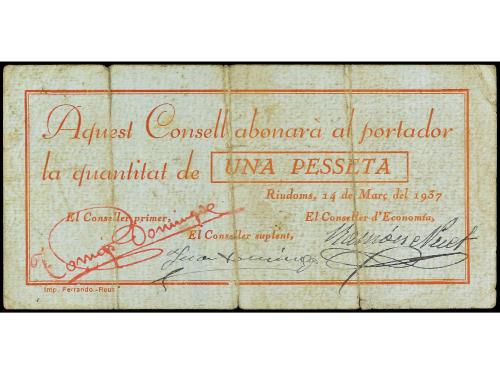 Aquest Consell abonarà al portador
la quantitat de UNA PESSETA
Riudoms, 14 de Març del 1937
El Conseller primer, El Conseller suplent, El Conseller d'Economia,
Domingo
Juan Domingo
Imp. Ferrando.-Reus